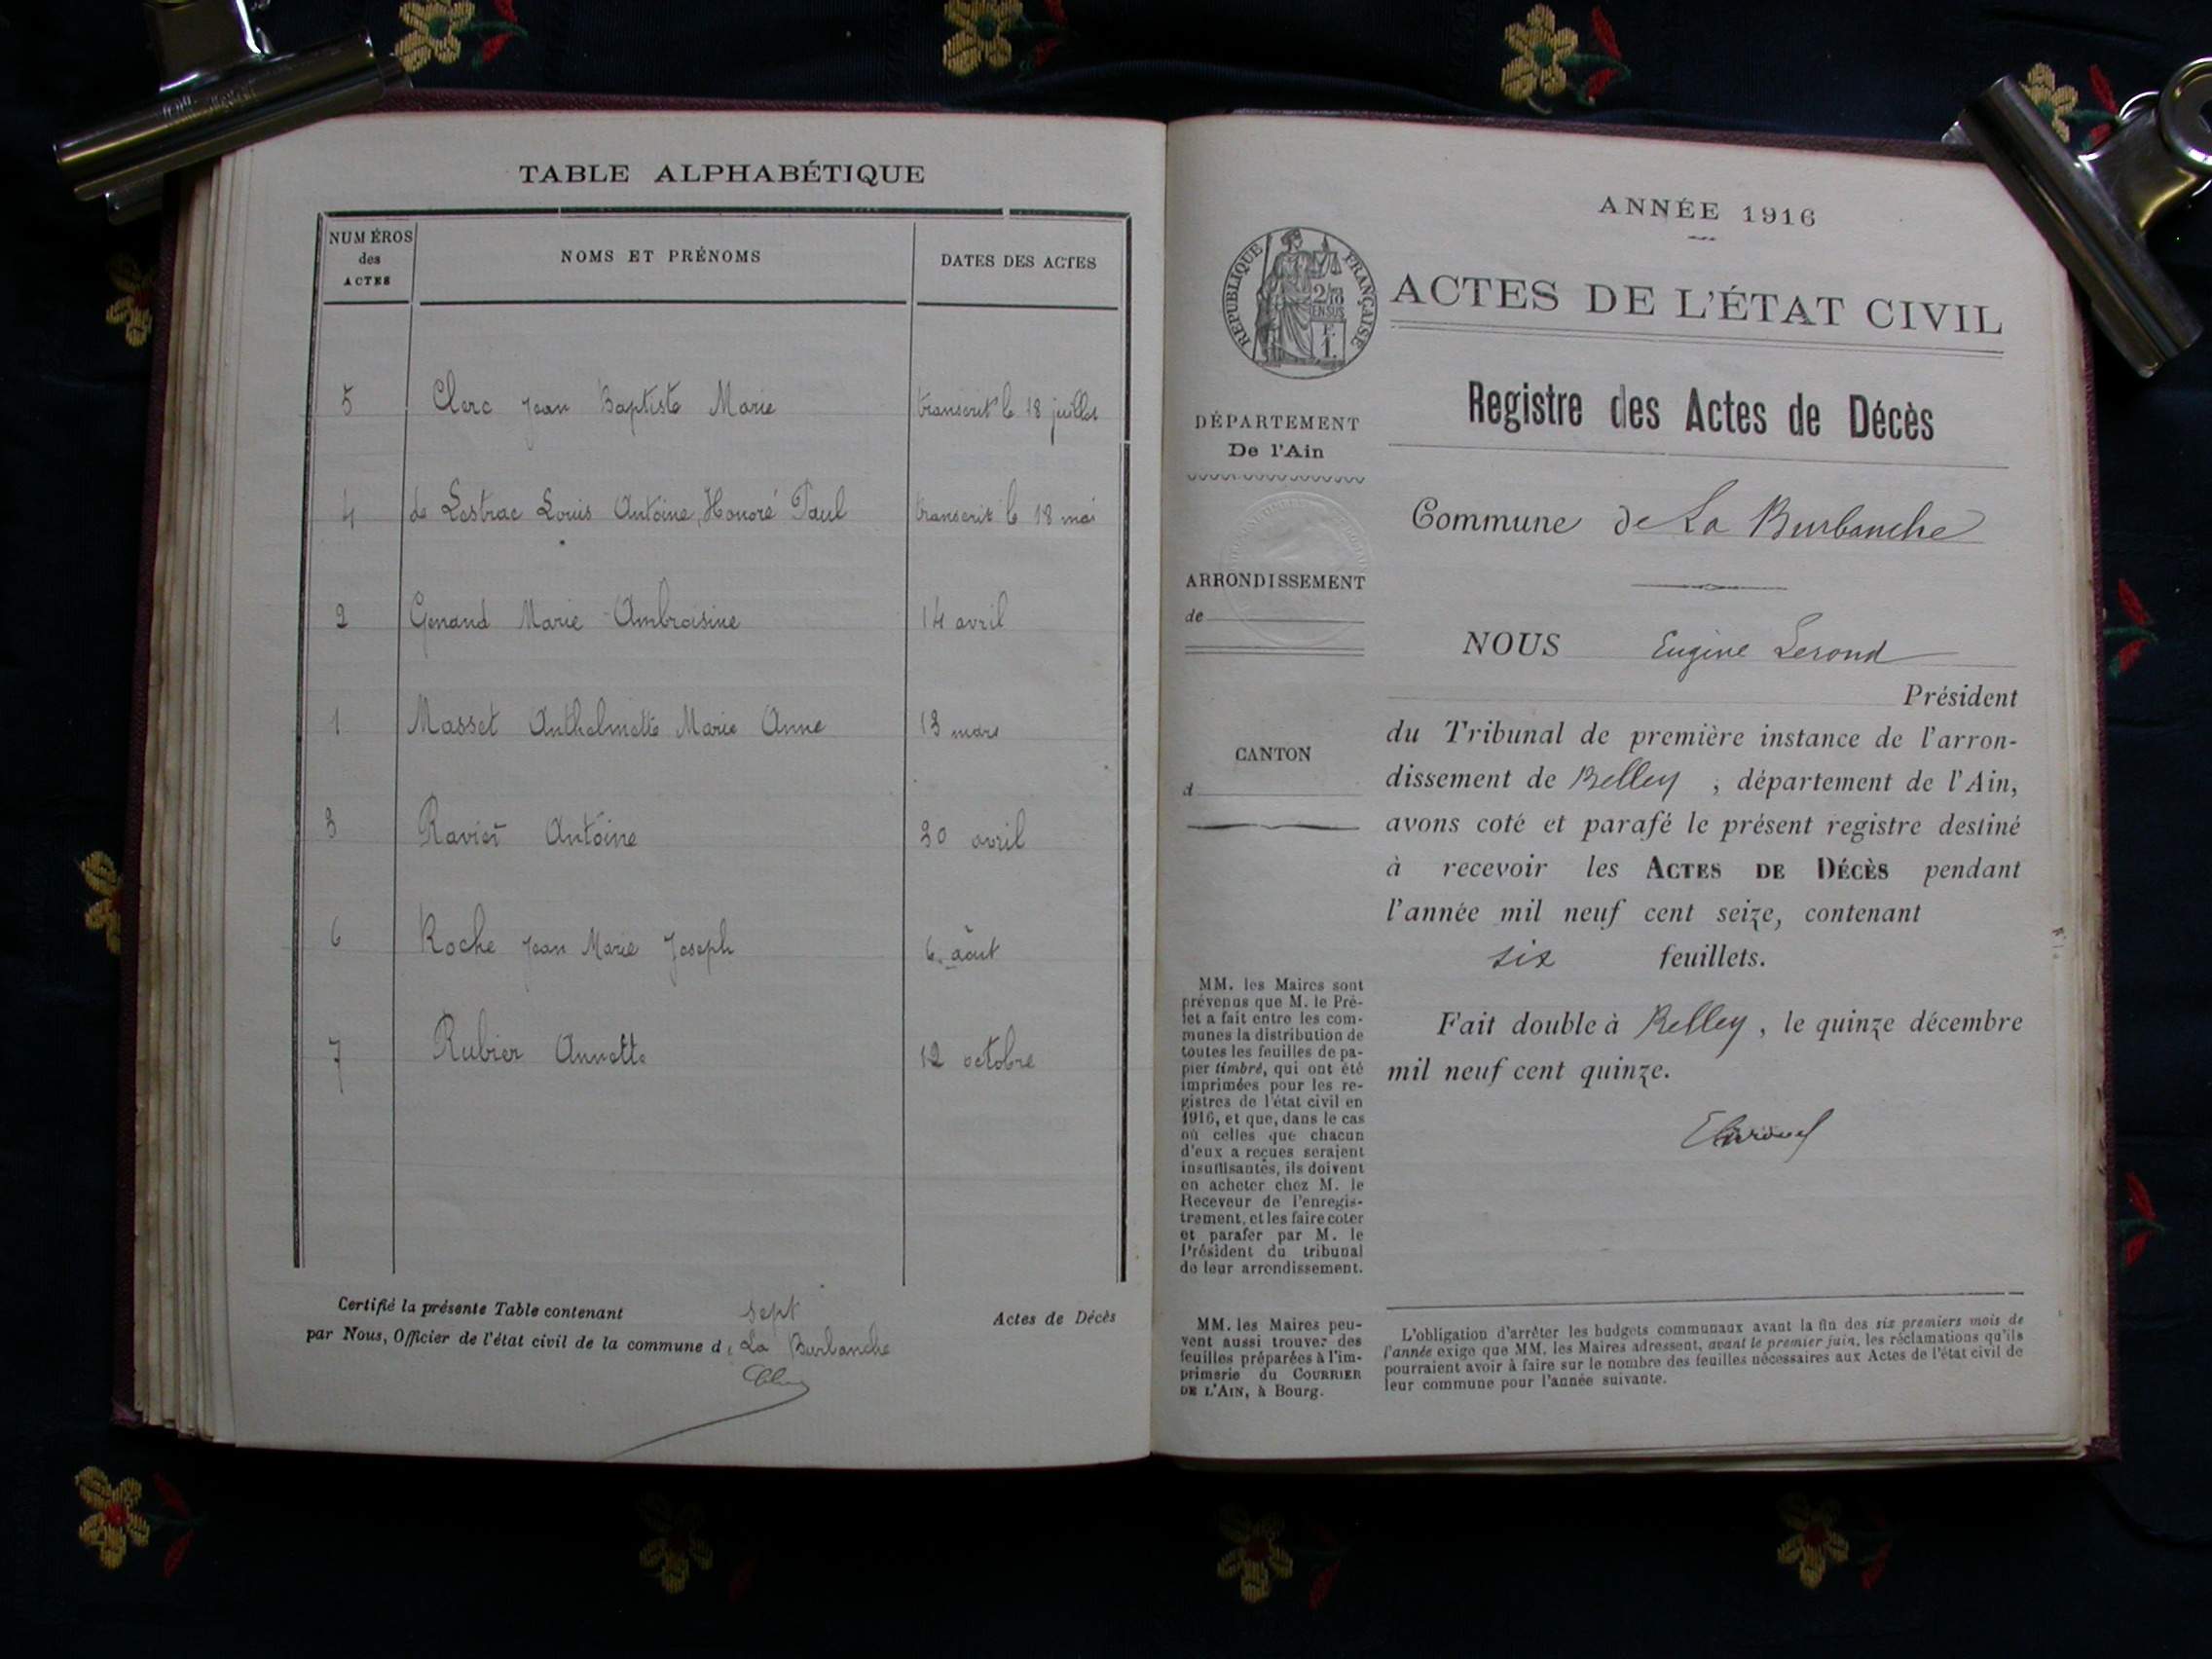 TABLE ALPHABÉTIQUE
NUMÉROS des ACTES
NOMS ET PRÉNOMS
DATES DES ACTES
5 Clerc Jean Baptiste Marie transcrit le 18 juillet
4 de Lestrac Louis Antoine, Honoré Paul transcrit le 18 mai
2 Genand Marie Ambroisine 14 avril
1 Masset Anthelmette Marie Anne 13 mars
3 Ravier Antoine 30 avril
6 Roche Jean Marie Joseph 6 août
7 Rubier Annette 12 octobre
Certifié la présente Table contenant sept Actes de Décès
par Nous, Officier de l'état civil de la commune d e La Burbanche
ANNÉE 1916
RÉPUBLIQUE FRANÇAISE
2/10
EN SUS
F.
1.
ACTES DE L'ÉTAT CIVIL
Registre des Actes de Décès
DÉPARTEMENT
De l'Ain
Commune de La Burbanche
ARRONDISSEMENT
de
NOUS Eugène Lerond
Président
du Tribunal de première instance de l'arron-
dissement de Belley, département de l'Ain,
avons coté et parafé le présent registre destiné
à recevoir les ACTES DE DÉCÈS pendant
l'année mil neuf cent seize, contenant
six feuillets.
Fait double à Belley, le quinze décembre
mil neuf cent quinze.
ELerond
CANTON
d
MM. les Maires sont
prévenus que M. le Pré-
fet a fait entre les com-
munes la distribution de
toutes les feuilles de pa-
pier timbré, qui ont été
imprimées pour les re-
gistres de l'état civil en
1916, et que, dans le cas
où celles que chacun
d'eux a reçues seraient
insuffisantes, ils doivent
en acheter chez M. le
Receveur de l'enregis-
trement, et les faire coter
et parafer par M. le
Président du tribunal
de leur arrondissement.
MM. les Maires peu-
vent aussi trouver des
feuilles préparées à l'im-
primerie du COURRIER
DE L'AIN, à Bourg.
L'obligation d'arrêter les budgets communaux avant la fin des six premiers mois de
l'année exige que MM. les Maires adressent, avant le premier juin, les réclamations qu'ils
pourraient avoir à faire sur le nombre des feuilles nécessaires aux Actes de l'état civil de
leur commune pour l'année suivante.